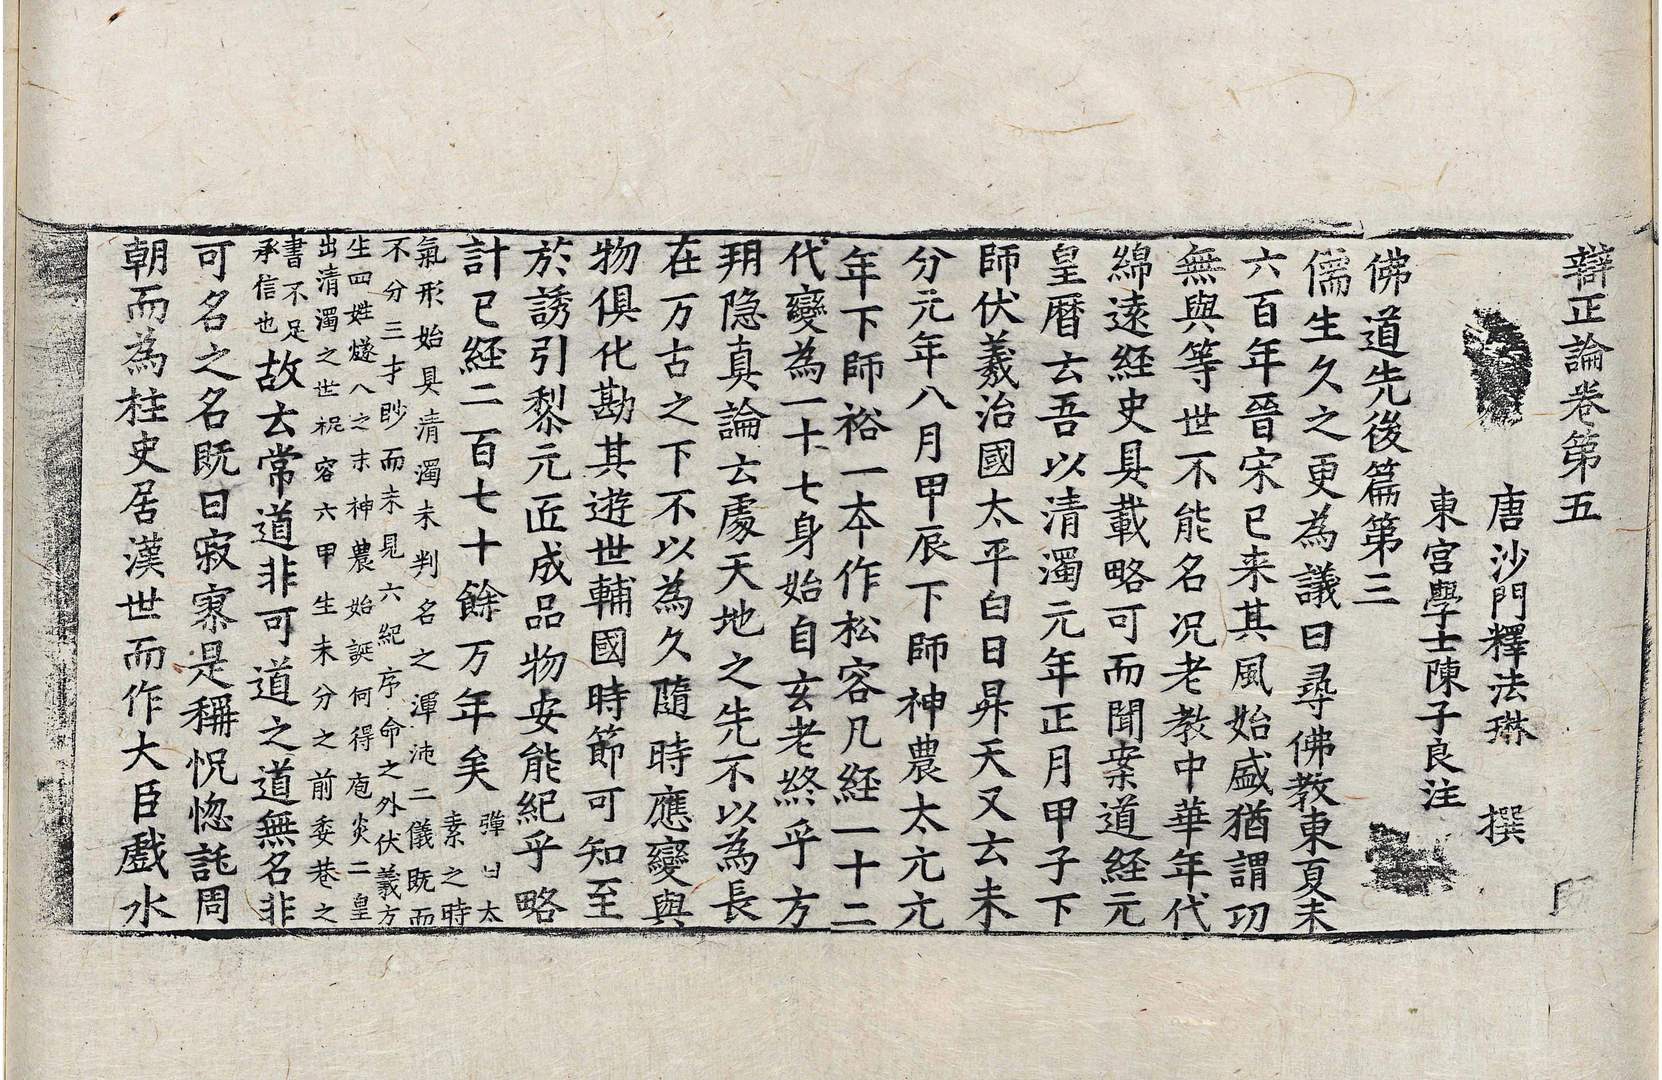 辯正論卷第五
唐沙門釋法琳 撰
東宮學士陳子良注
佛道先後篇第三
儒生久之更為議曰尋佛教東夏未
六百年晉宋已来其風始盛猶謂㓛
無與等世不能名况老教中華年代
綿遠經史具載略可而聞案道經元
皇曆云吾以清濁元年正月甲子下
師伏羲治國太平白日昇天又云未
分元年八月甲辰下師神農太亢亢
年下師裕一夲作松容凢經一十二
代變為一十七身始自玄老終乎方
朔隐真論云處天地之先不以為長
在万古之下不以為久隨時應變與
物俱化勘其遊世輔國時節可知至
於誘引黎元匠成品物安能紀乎略
計已經二百七十餘万年矣
彈曰太
素之時
氣形始具清濁未判名之渾沌二儀既而
不分三才眇而未見六紀序命之外伏羲方
生四姓燧人之末神農始誕何得庖炎二皇
出清濁之世祝容六甲生未分之前委巷之
書不足
承信也
故云常道非可道之道無名非
可名之名既曰寂寞是稱怳惚託周
朝而為柱史居漢世而作大臣戲水